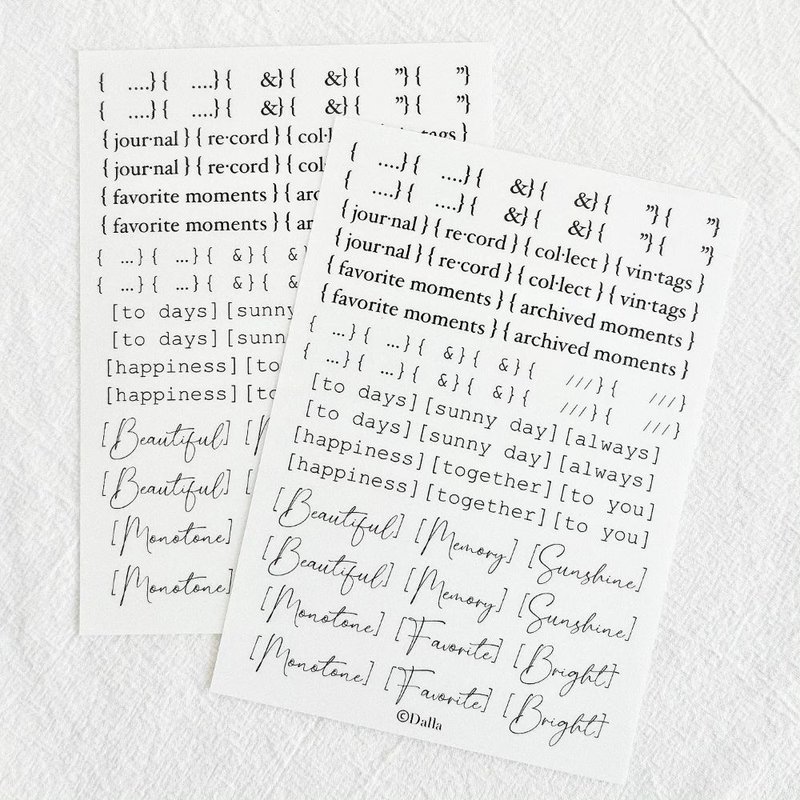 { ....} { ....} { &} { &} { ”} { ”}
{ ....} { ....} { &} { &} { ”} { ”}
{ jour·nal } { re·cord } { col·l tags }
{ jour·nal } { re·cord } { col·l
{ favorite moments } { arc
{ favorite moments } { ar
{ ...} { ...} { &} { &
{ ...} { ...} { &} { &
[to days] [sunny
[to days] [sunn
[happiness] [to
[happiness] [to
[Beautiful] [
[Beautiful] [
[Monotone]
[Monotone]
{ ....} { ....} { &} { &} { ”} { ”}
{ ....} { ....} { &} { &} { ”} { ”}
{ jour·nal } { re·cord } { col·lect } { vin·tags }
{ jour·nal } { re·cord } { col·lect } { vin·tags }
{ favorite moments } { archived moments }
{ favorite moments } { archived moments }
{ ...} { ...} { &} { &} { ///} { ///}
{ ...} { ...} { &} { &} { ///} { ///}
[to days] [sunny day] [always]
[to days] [sunny day] [always]
[happiness] [together] [to you]
[happiness] [together] [to you]
[Beautiful] [Memory] [Sunshine]
[Beautiful] [Memory] [Sunshine]
[Monotone] [Favorite] [Bright]
[Monotone] [Favorite] [Bright]
©Dalla